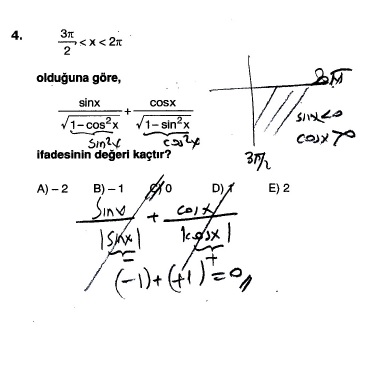 4. 3π/2 < x < 2π
olduğuna göre,
sinx/√(1−cos²x) + cosx/√(1−sin²x)
sin²x cos²x
ifadesinin değeri kaçtır?
A) – 2 B) – 1 C) 0 D) 1 E) 2
2π
sinx<0
cosx>0
3π/2
sinx/|sinx| + cosx/|cosx|
− +
(−1)+(+1)=0